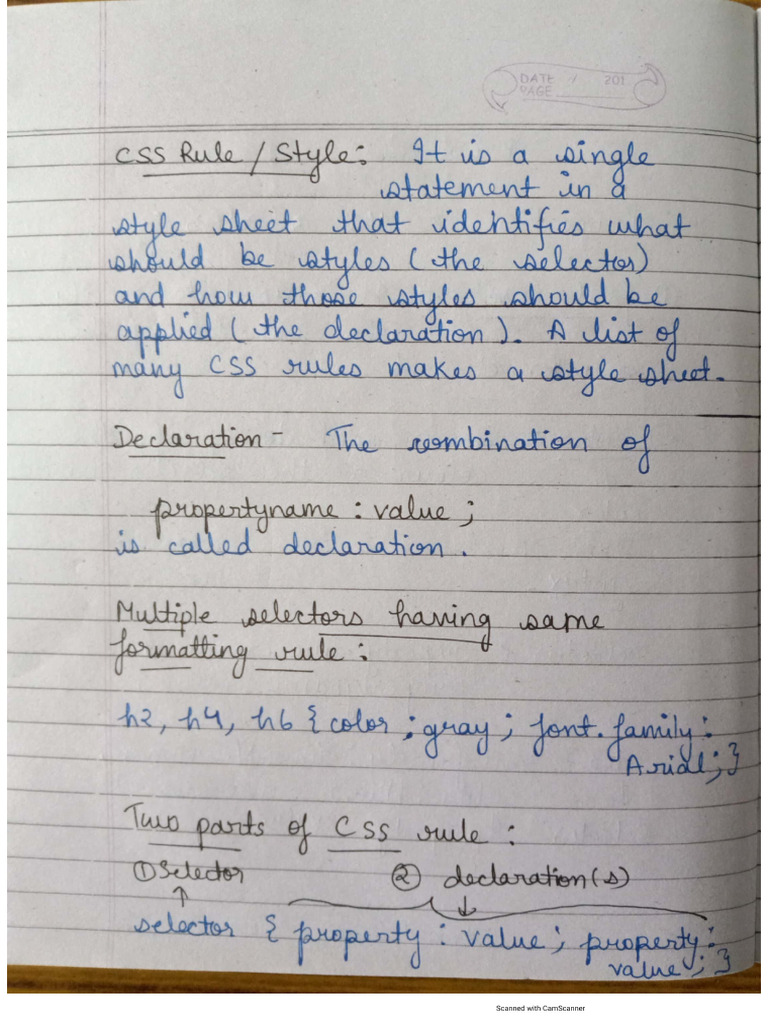 DATE / 201
PAGE
CSS Rule / Style: It is a single
statement in a
style sheet that identifies what
should be styles (the selector)
and how those styles should be
applied (the declaration). A list of
many CSS rules makes a style sheet.
Declaration - The combination of
propertyname : value ;
is called declaration.
Multiple selectors having same
formatting rule:
h2, h4, h6 { color ; gray ; font.family:
Arial; }
Two parts of CSS rule:
① Selector ② declaration(s)
selector { property : value ; property:
value ; }
Scanned with CamScanner